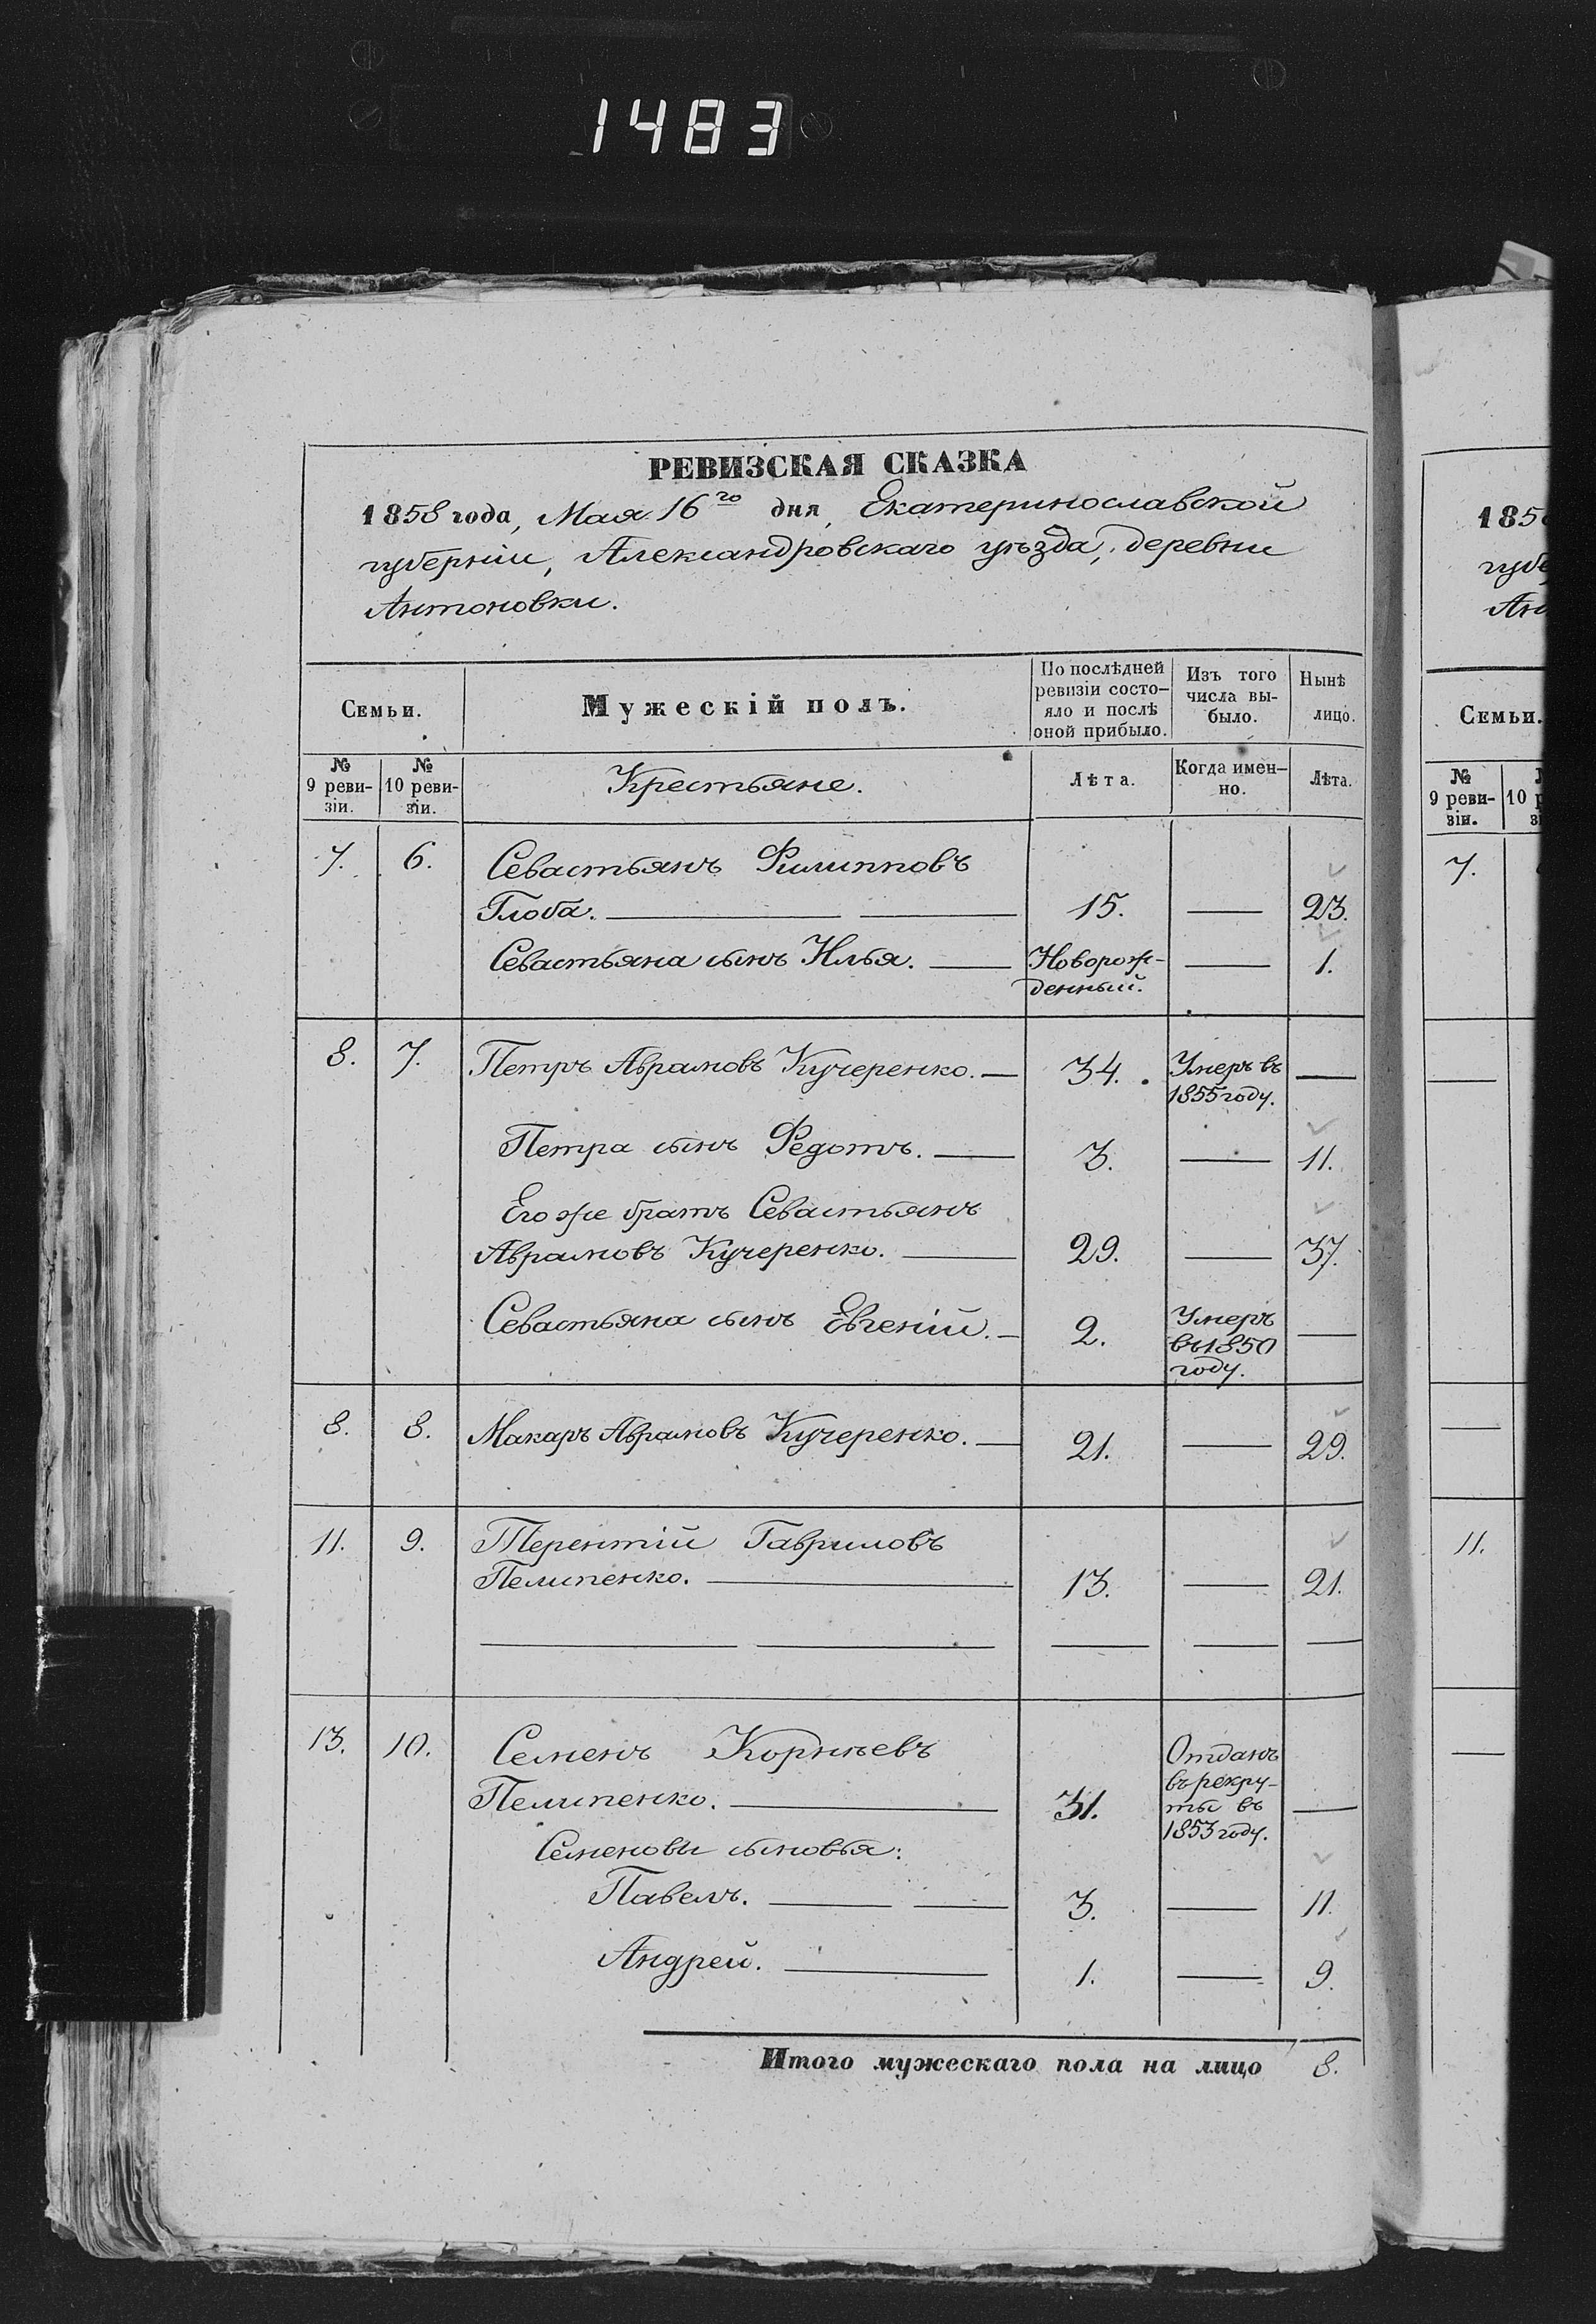 1483
РЕВИЗСКАЯ СКАЗКА
1858 года, Мая 16го дня, Екатеринославской
губерніи, Александровскаго уѣзда, деревни
Антоновки.
Семьи.
Мужескій полъ.
По послѣдней
ревизіи состо-
яло и послѣ
оной прибыло.
Изъ того
числа вы-
было.
Нынѣ
лицо.
№
9 реви-
зіи.
№
10 реви-
зіи.
Крестьяне.
Лѣта.
Когда имен-
но.
Лѣта.
7. 6. Севастьянъ Филипповъ
Глоба. — — 15. — 23.
Севастьяна сынъ Илья. — Новорож- — 1.
денный.
8. 7. Петръ Абрамовъ Кучеренко. — 34. Умеръ въ —
1855 году.
Петра сынъ Федотъ. — 3. — 11.
Его же братъ Севастьянъ
Абрамовъ Кучеренко. — 29. — 37.
Севастьяна сынъ Евгеній. — 2. Умеръ —
въ 1850
году.
8. 8. Макаръ Абрамовъ Кучеренко. — 21. — 29.
11. 9. Терентій Гавриловъ
Пелипенко. — 13. — 21.
13. 10. Семенъ Корнѣевъ
Пелипенко. — 31. —
Отданъ
въ рекру-
ты въ
1853 году.
Семеновы сыновья:
Павелъ. — — 3. — 11.
Андрей. — 1. — 9.
Итого мужескаго пола на лицо 8.
185
губе
Ан
Семьи.
№
9 реви-
зіи.
10
7.
11.